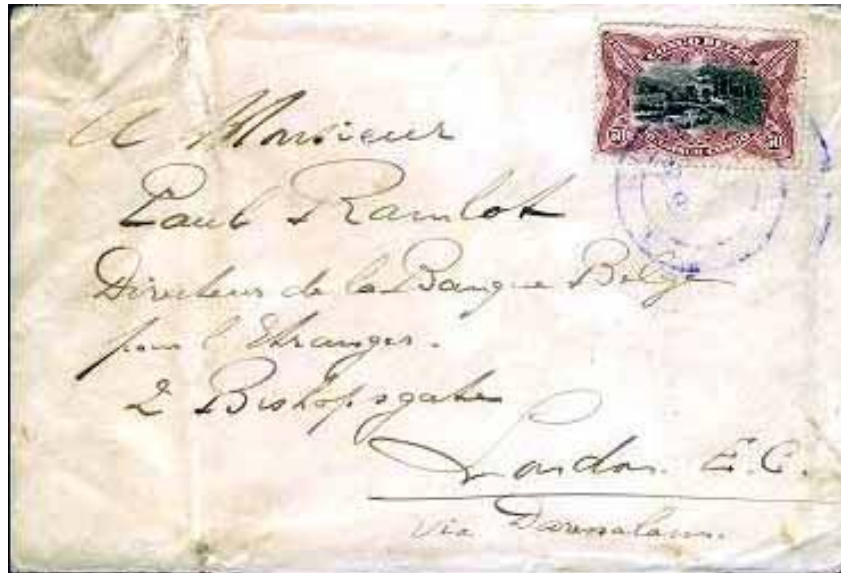 CONGO BELGE
50 50
A Monsieur
Paul Ramlot
Directeur de la Banque Belge
pour l'Etranger.
2 Bishopsgate
London. E.C.
via Daressalam.